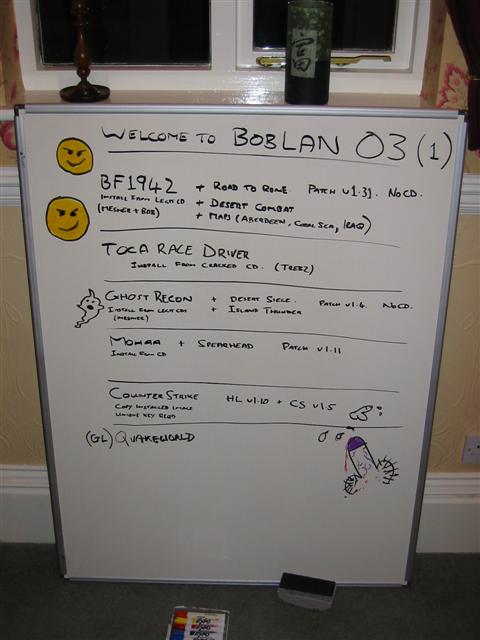 富
WELCOME TO BOBLAN 03 (1)
BF1942 + ROAD TO ROME. PATCH V1.31. NO CD.
INSTALL FROM LECTI CD + DESERT COMBAT
(MESHER + BOB) + MAPS (ABERDEEN, CORAL SEA, IRAQ)
TOCA RACE DRIVER
INSTALL FROM CRACKED CD. (TREEZ)
GHOST RECON + DESERT SIEGE. PATCH V1.4. NO CD.
INSTALL FROM LECTI CDS + ISLAND THUNDER
(MESHER)
MOHAA + SPEARHEAD PATCH V1.11
INSTALL FROM CD
COUNTER STRIKE HL V1.10 + CS V1.5
COPY INSTALLED IMAGE
UNIQUE KEY REQD
(GL) QUAKEWORLD